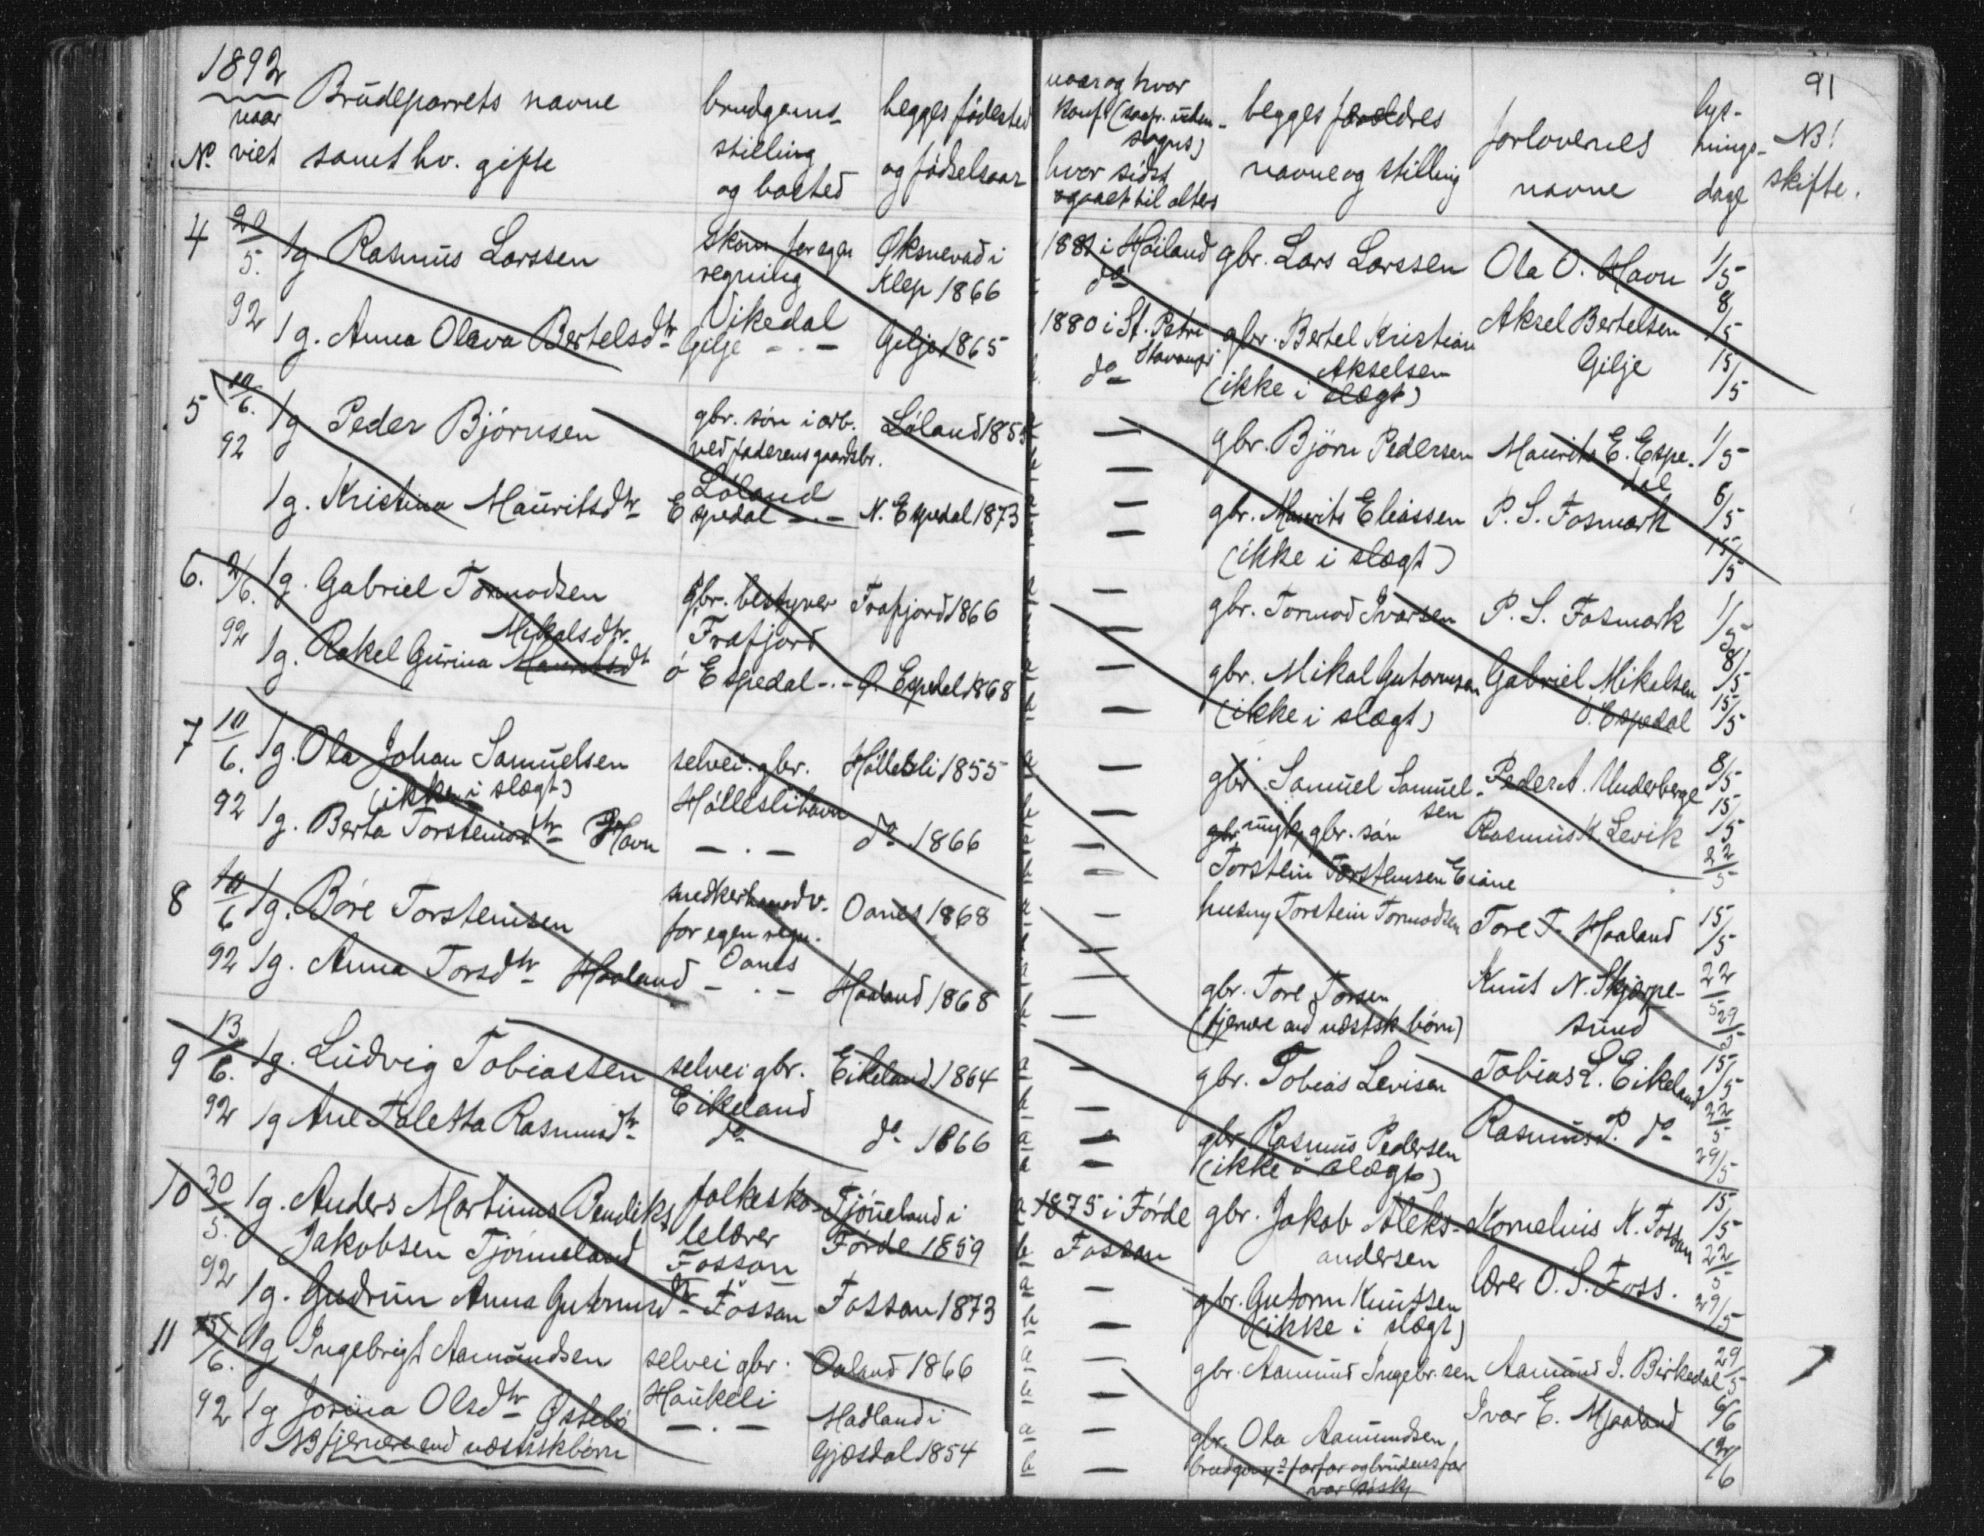 1892
91
No. naar viet
Brudeparrets navne samt hv. gifte
brudgoms stilling og bosted
begges fødested og fødselsaar
naar og hvor konf. (saafr. uden-sogns)
hvor sidst ogaaet til alters
begges forældres navne og stilling
forlovernes navne
lys-nings-dage
NB! skifte.
4
/5. 92
1g. Rasmus Larssen
skom. for egen regning
Vikedal
Øksnevad i Klep 1866
1881 i Høiland
do
gbr. Lars Larssen
Ola O. Havn
1/5 8/5 15/5
1g. Anna Olava Bertelsdtr
Gilje - . -
Gilje 1865
1880 i St. Petri Stavanger
do
gbr. Bertel Kristian Akselsen
(ikke i slægt)
Aksel Bertelsen Gilje
5
/6. 92
1g. Peder Bjørnsen
gbr. søn i arb. ved faderens gaardsbr.
Løland
Løland 185
—
—
gbr. Bjørn Pedersen
Maurits E. Espe-dal
1/5 8/5 15/5
1g. Kristina Mauritsdtr
Espedal - . -
N. Espedal 1873
—
—
gbr. Maurits Eliassen
(ikke i slægt)
P. S. Fosmark
6.
2/6. 92
1g. Gabriel Tormodsen
gbr. bestyrer
Frafjord
Frafjord 1866
—
—
gbr. Tormod Ivarsen
P. S. Fosmark
1/5 8/5 15/5
1g. Rakel Gurina Mauritsdt Mikalsdtr.
ø Espedal - . -
Ø. Espedal 1868
—
—
gbr. Mikal Gutormsen
(ikke i slægt)
Gabriel Mikalsen Ø. Espedal
7
10/6. 92
1g. Ola Johan Samuelsen
(ikke i slægt)
selvei. gbr.
Hølleslihavn
Hølleshli 1855
—
—
gbr. Samuel Samuel-sen
Peder A. Underberge
8/5 15/5 22/5
1g. Berta Torsteinsdtr Havn
- . -
do 1866
—
—
gbr. søn Torstein Torsteinsen Eiane
Rasmus K. Levik
8
10/6 92
1g. Børe Torsteinsen
snedkerhandv. for egen regn.
Oanes
Oanes 1868
—
—
husmy Torstein Tormodsen
Tore T. Haaland
15/5 22/5 29/5
1g. Anna Torsdtr Haaland
- . -
Haaland 1868
—
—
gbr. Tore Torsen
(fjernere end næstsk børn)
Knut N. Skjørpe-sund
9
13/6. 92
1g. Ludvig Tobiassen
selvei gbr.
Eikeland
Eikeland 1864
—
—
gbr. Tobias Levisen
Tobias L. Eikeland
15/5 22/5 29/5
1g Ane Taletta Rasmusdtr
do
do 1866
—
—
gbr. Rasmus Pedersen
(ikke i slægt)
Rasmus P. do
10
30/5. 92
1g. Anders Martinus Bendiks Jakobsen Tjønneland
folkesko-lelærer
Fossan
Tjøneland i Førde 1859
1875 i Førde
Fossan
gbr. Jakob Aleks-andersen
Kornelius K. Fossan
15/5 22/5 29/5
1g. Gudrun Anna Gutormsdtr Fossan
Fossan 1873
—
—
gbr. Gutorm Knutsen
(ikke i slægt)
lærer O. S. Foss.
11
15/6. 92
1g Ingebrigt Aamundsen
selvei gbr.
Haukeli
Oaland 1866
—
—
gbr. Aamund Ingebr.sen
Aamund I. Birkedal
29/5 6/6 12/6
1g Jorina Olsdtr Østebø
- . -
Madland i Gjæsdal 1854
—
—
gbr. Ola Aamundsen
Ivar E. Mjaaland
NB fjernere end næstskbørn
brudgoms farfar og brudens far var søsk